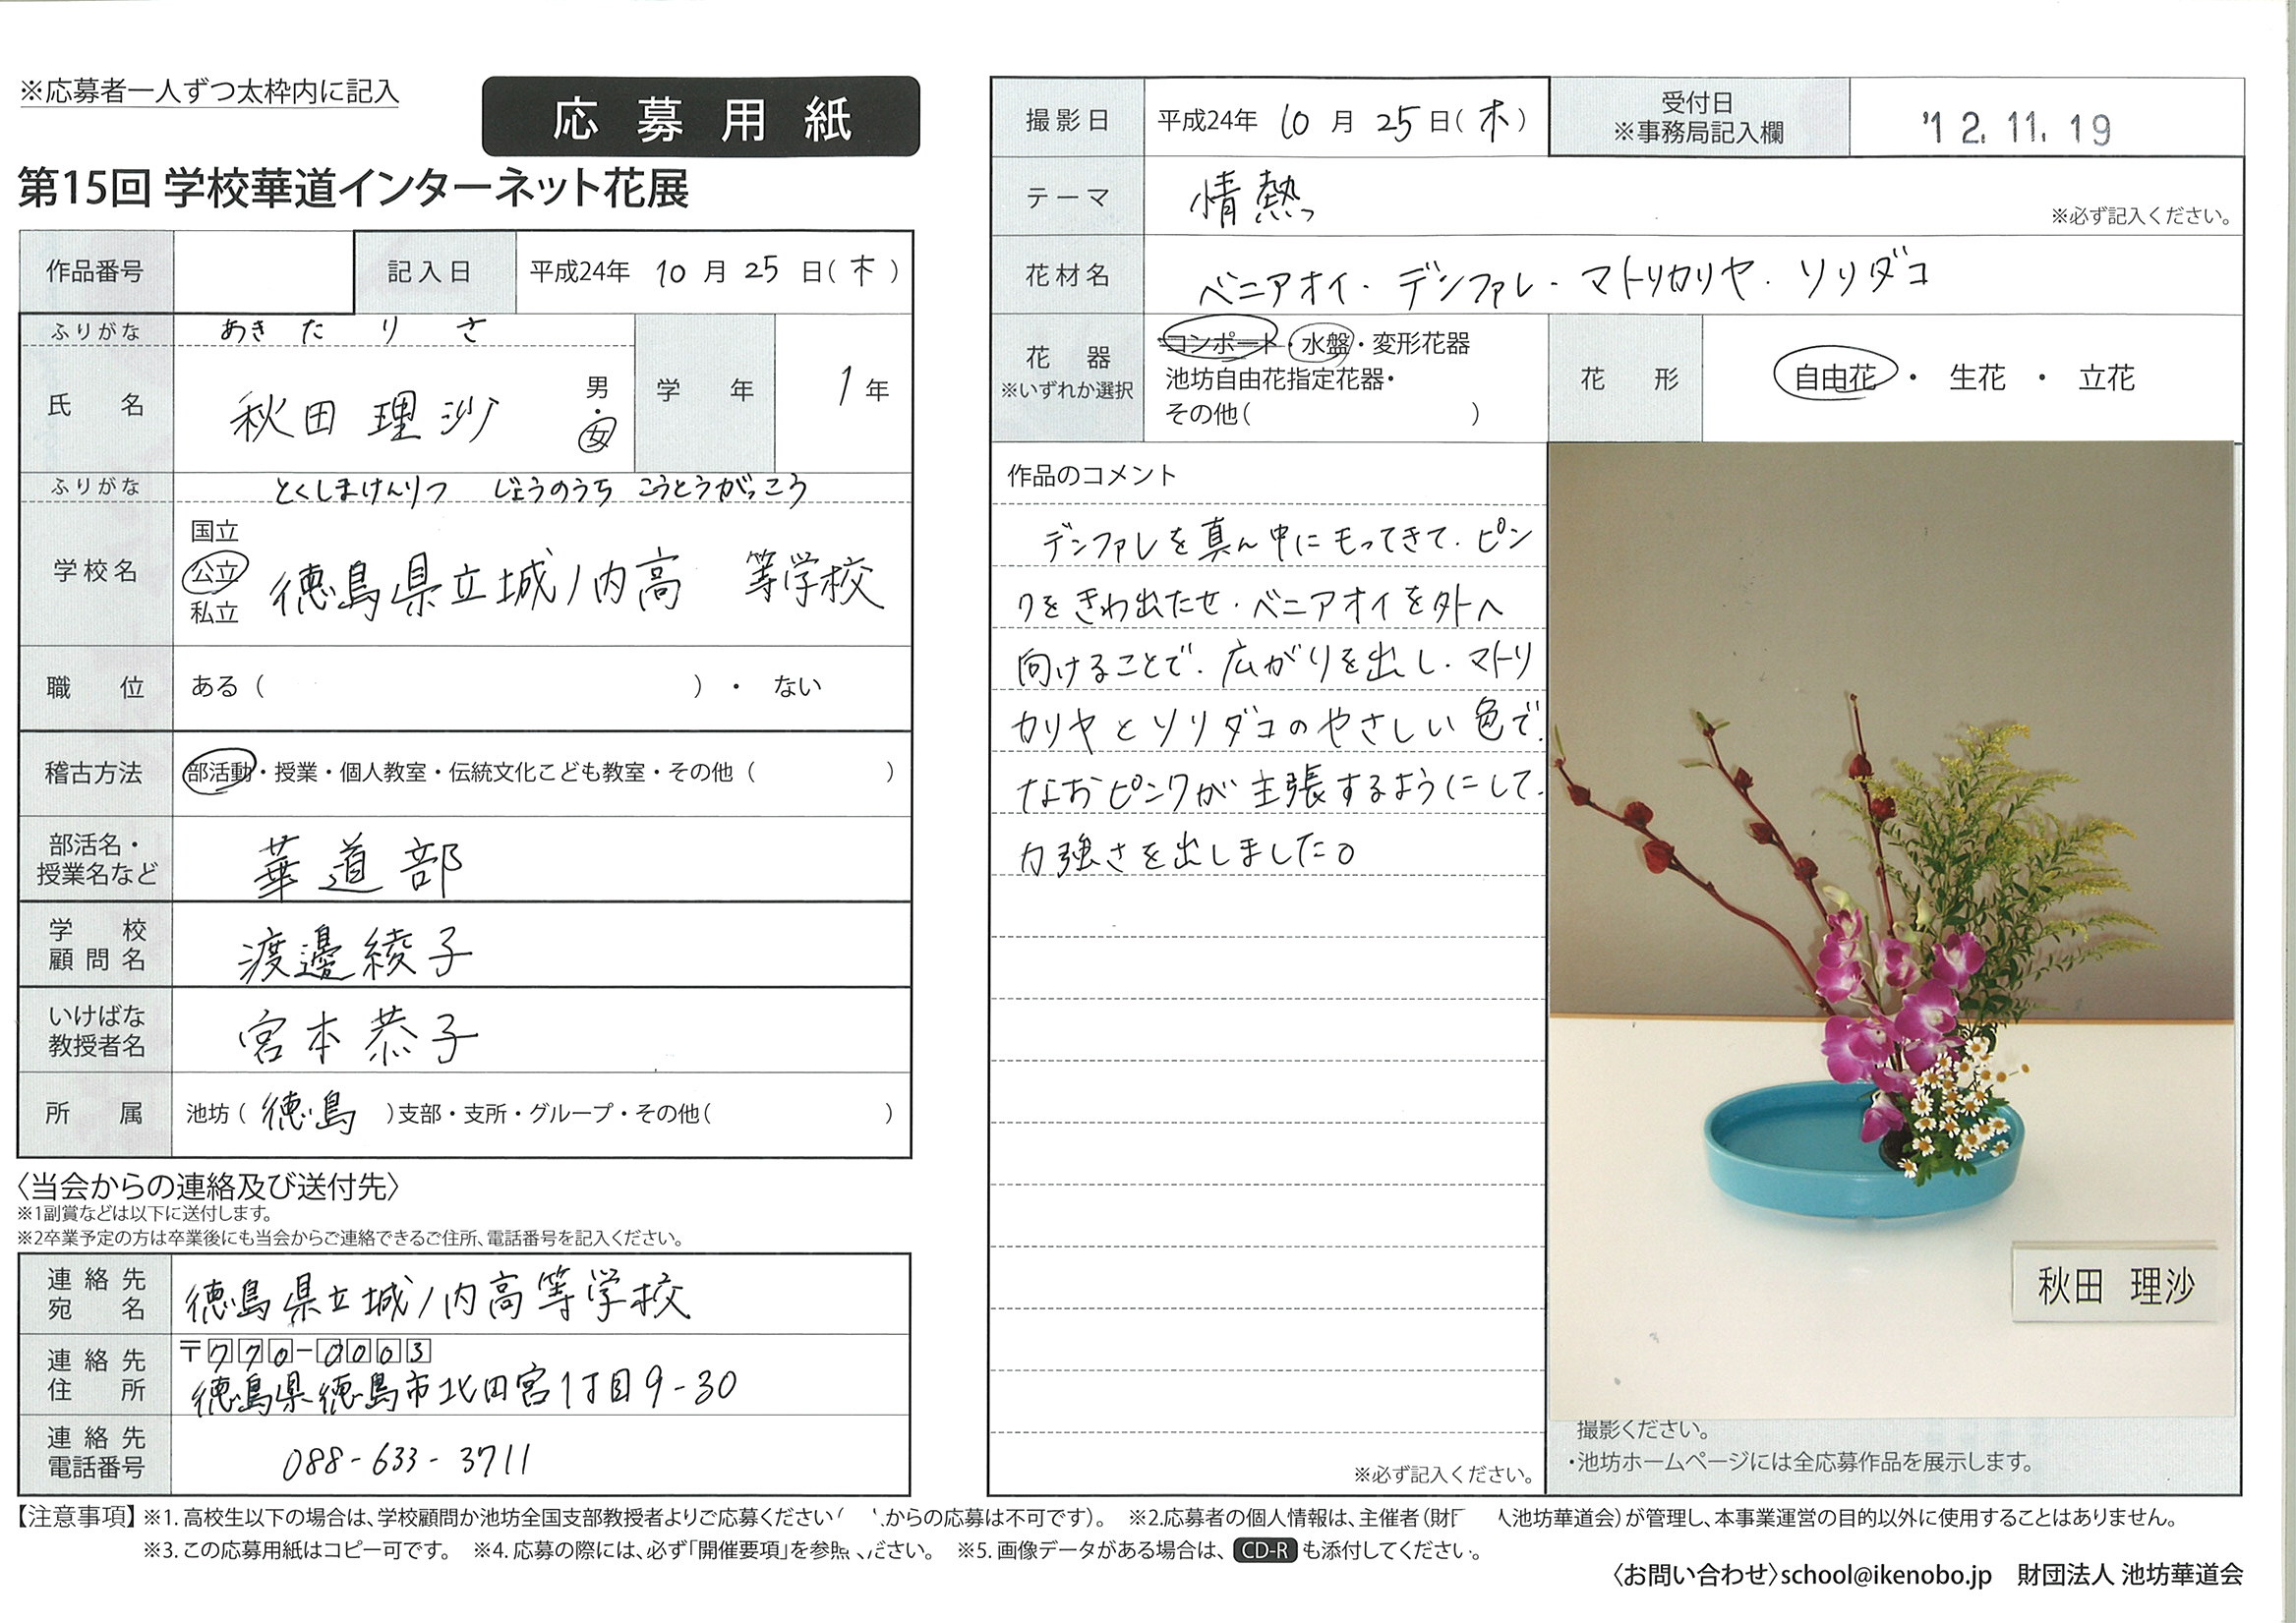 ※応募者一人ずつ太枠内に記入
応募用紙
第15回 学校華道インターネット花展
作品番号
記入日 平成24年 10月25日(木)
ふりがな あきた りさ
氏名 秋田 理沙 男・女
学年 1年
ふりがな とくしまけんりつ じょうのうち こうとうがっこう
学校名 国立
公立 徳島県立城ノ内高 等学校
私立
職位 ある( )・ ない
稽古方法 部活動・授業・個人教室・伝統文化こども教室・その他( )
部活名・
授業名など 華道部
学校
顧問名 渡邊綾子
いけばな
教授者名 宮本恭子
所属 池坊(徳島)支部・支所・グループ・その他( )
〈当会からの連絡及び送付先〉
※1副賞などは以下に送付します。
※2卒業予定の方は卒業後にも当会からご連絡できるご住所、電話番号を記入ください。
連絡先
宛名 徳島県立城ノ内高等学校
連絡先
住所 〒770-0003
徳島県徳島市北田宮1丁目9-30
連絡先
電話番号 088-633-3711
撮影日 平成24年 10月25日(木)
受付日
※事務局記入欄 '12.11.19
テーマ 情熱
※必ず記入ください。
花材名 ベニアオイ・デンファレ・マトリカリヤ・ソリダコ
花器
※いずれか選択
コンポート・水盤・変形花器
池坊自由花指定花器・
その他( )
花形 自由花 ・ 生花 ・ 立花
作品のコメント
デンファレを真ん中にもってきて、ピン
クをきわ出たせ、ベニアオイを外へ
向けることで、広がりを出し、マトリ
カリヤとソリダコのやさしい色で、
なおピンクが主張するようにして、
力強さを出しました。
※必ず記入ください。
秋田 理沙
撮影ください。
・池坊ホームページには全応募作品を展示します。
【注意事項】※1. 高校生以下の場合は、学校顧問か池坊全国支部教授者よりご応募ください( からの応募は不可です)。 ※2.応募者の個人情報は、主催者(財 人池坊華道会)が管理し、本事業運営の目的以外に使用することはありません。
※3. この応募用紙はコピー可です。 ※4. 応募の際には、必ず「開催要項」を参照ください。 ※5. 画像データがある場合は、CD-Rも添付してください。
〈お問い合わせ〉school@ikenobo.jp 財団法人 池坊華道会